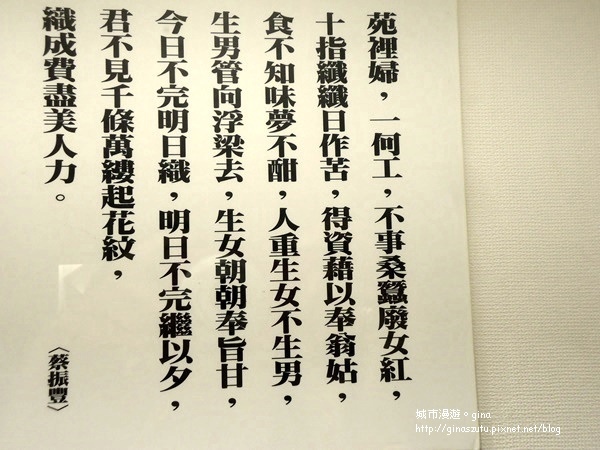 苑裡婦，一何工，不事桑蠶廢女紅，
十指纖纖日作苦，得資藉以奉翁姑，
食不知味夢不酣，人重生女不生男，
生男管向浮梁去，生女朝朝奉旨甘，
今日不完明日織，明日不完繼以夕，
君不見千條萬縷起花紋，
織成費盡美人力。
〈蔡振豐〉
城市漫遊。gina
http://ginaszutu.pixnet.net/blog